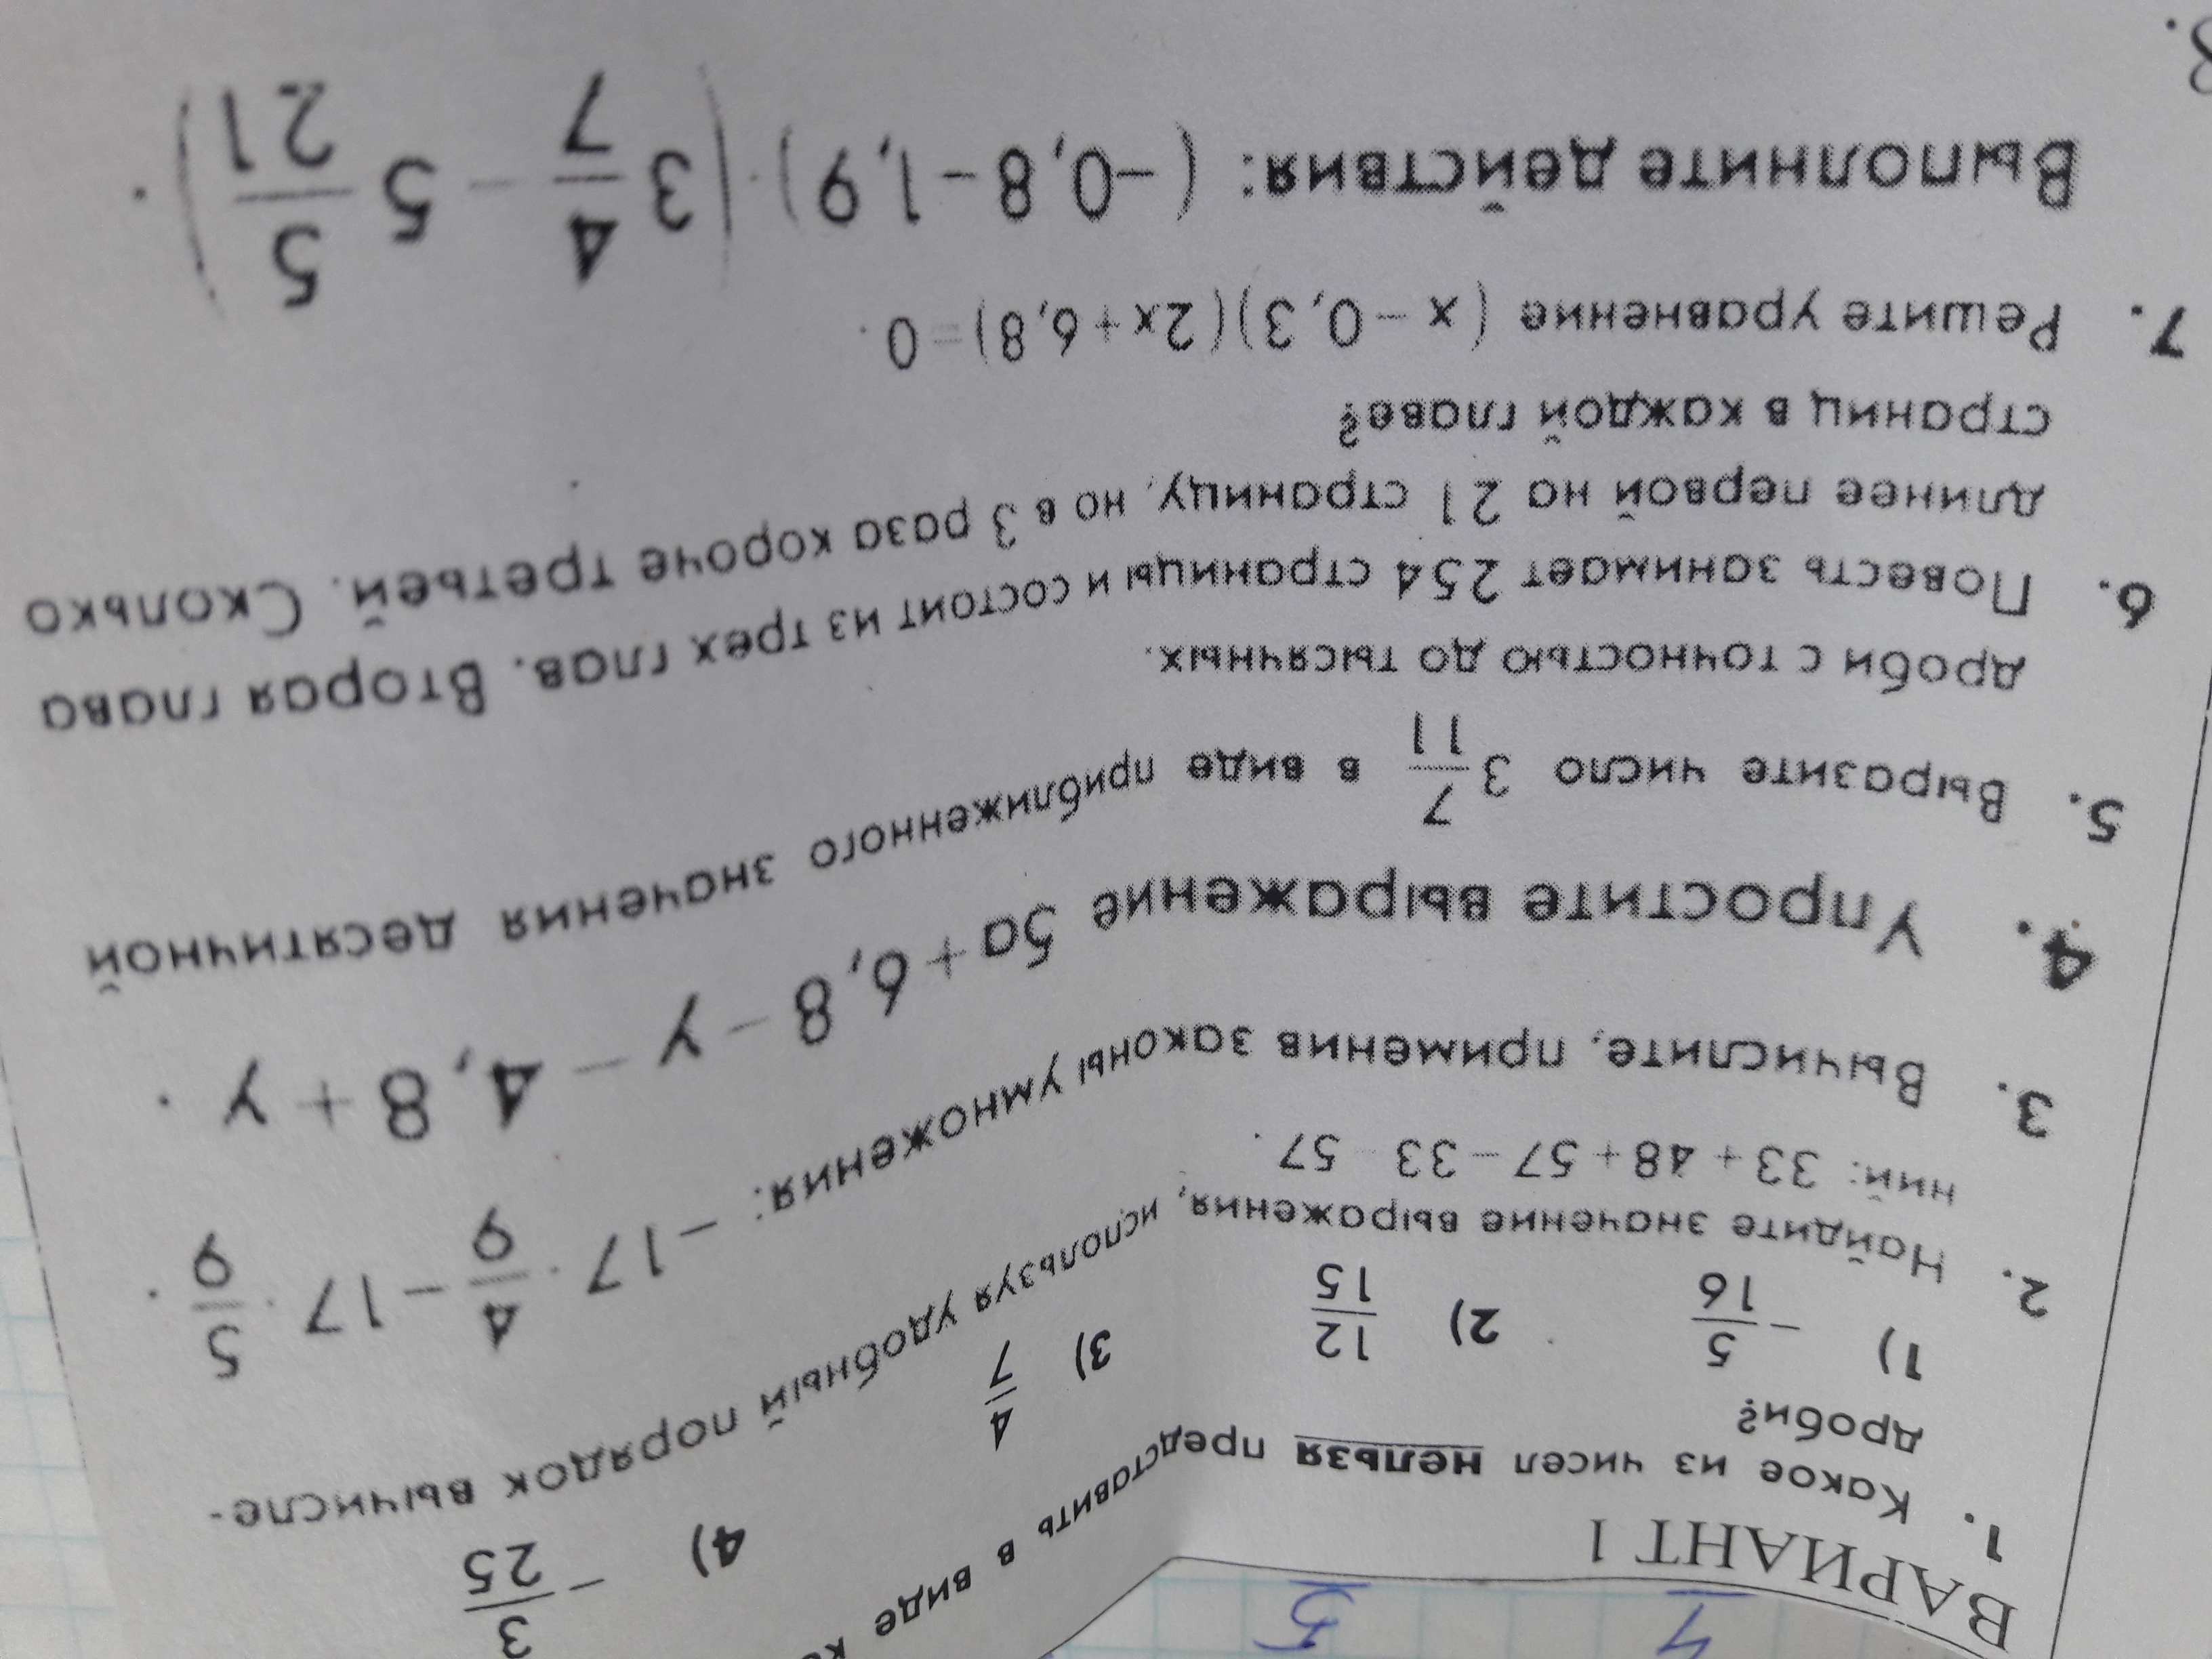 7 5
ВАРИАНТ 1
1. Какое из чисел нельзя представить в виде
дроби?
1) −5/16 2) 12/15 3) 4/7 4) −3/25
2. Найдите значение выражения, используя удобный порядок вычисле-
ний: 33 + 48 + 57 − 33 − 57.
3. Вычислите, применив законы умножения: −17 · 4/9 − 17 · 5/9.
4. Упростите выражение 5a + 6,8 − y − 4,8 + y.
5. Выразите число 3 7/11 в виде приближенного значения десятичной
дроби с точностью до тысячных.
6. Повесть занимает 254 страницы и состоит из трех глав. Вторая глава
длинее первой на 21 страницу, но в 3 раза короче третьей. Сколько
страниц в каждой главе?
7. Решите уравнение (x − 0,3)(2x + 6,8) = 0.
8. Выполните действия: (−0,8 − 1,9) · (3 4/7 − 5 5/21).